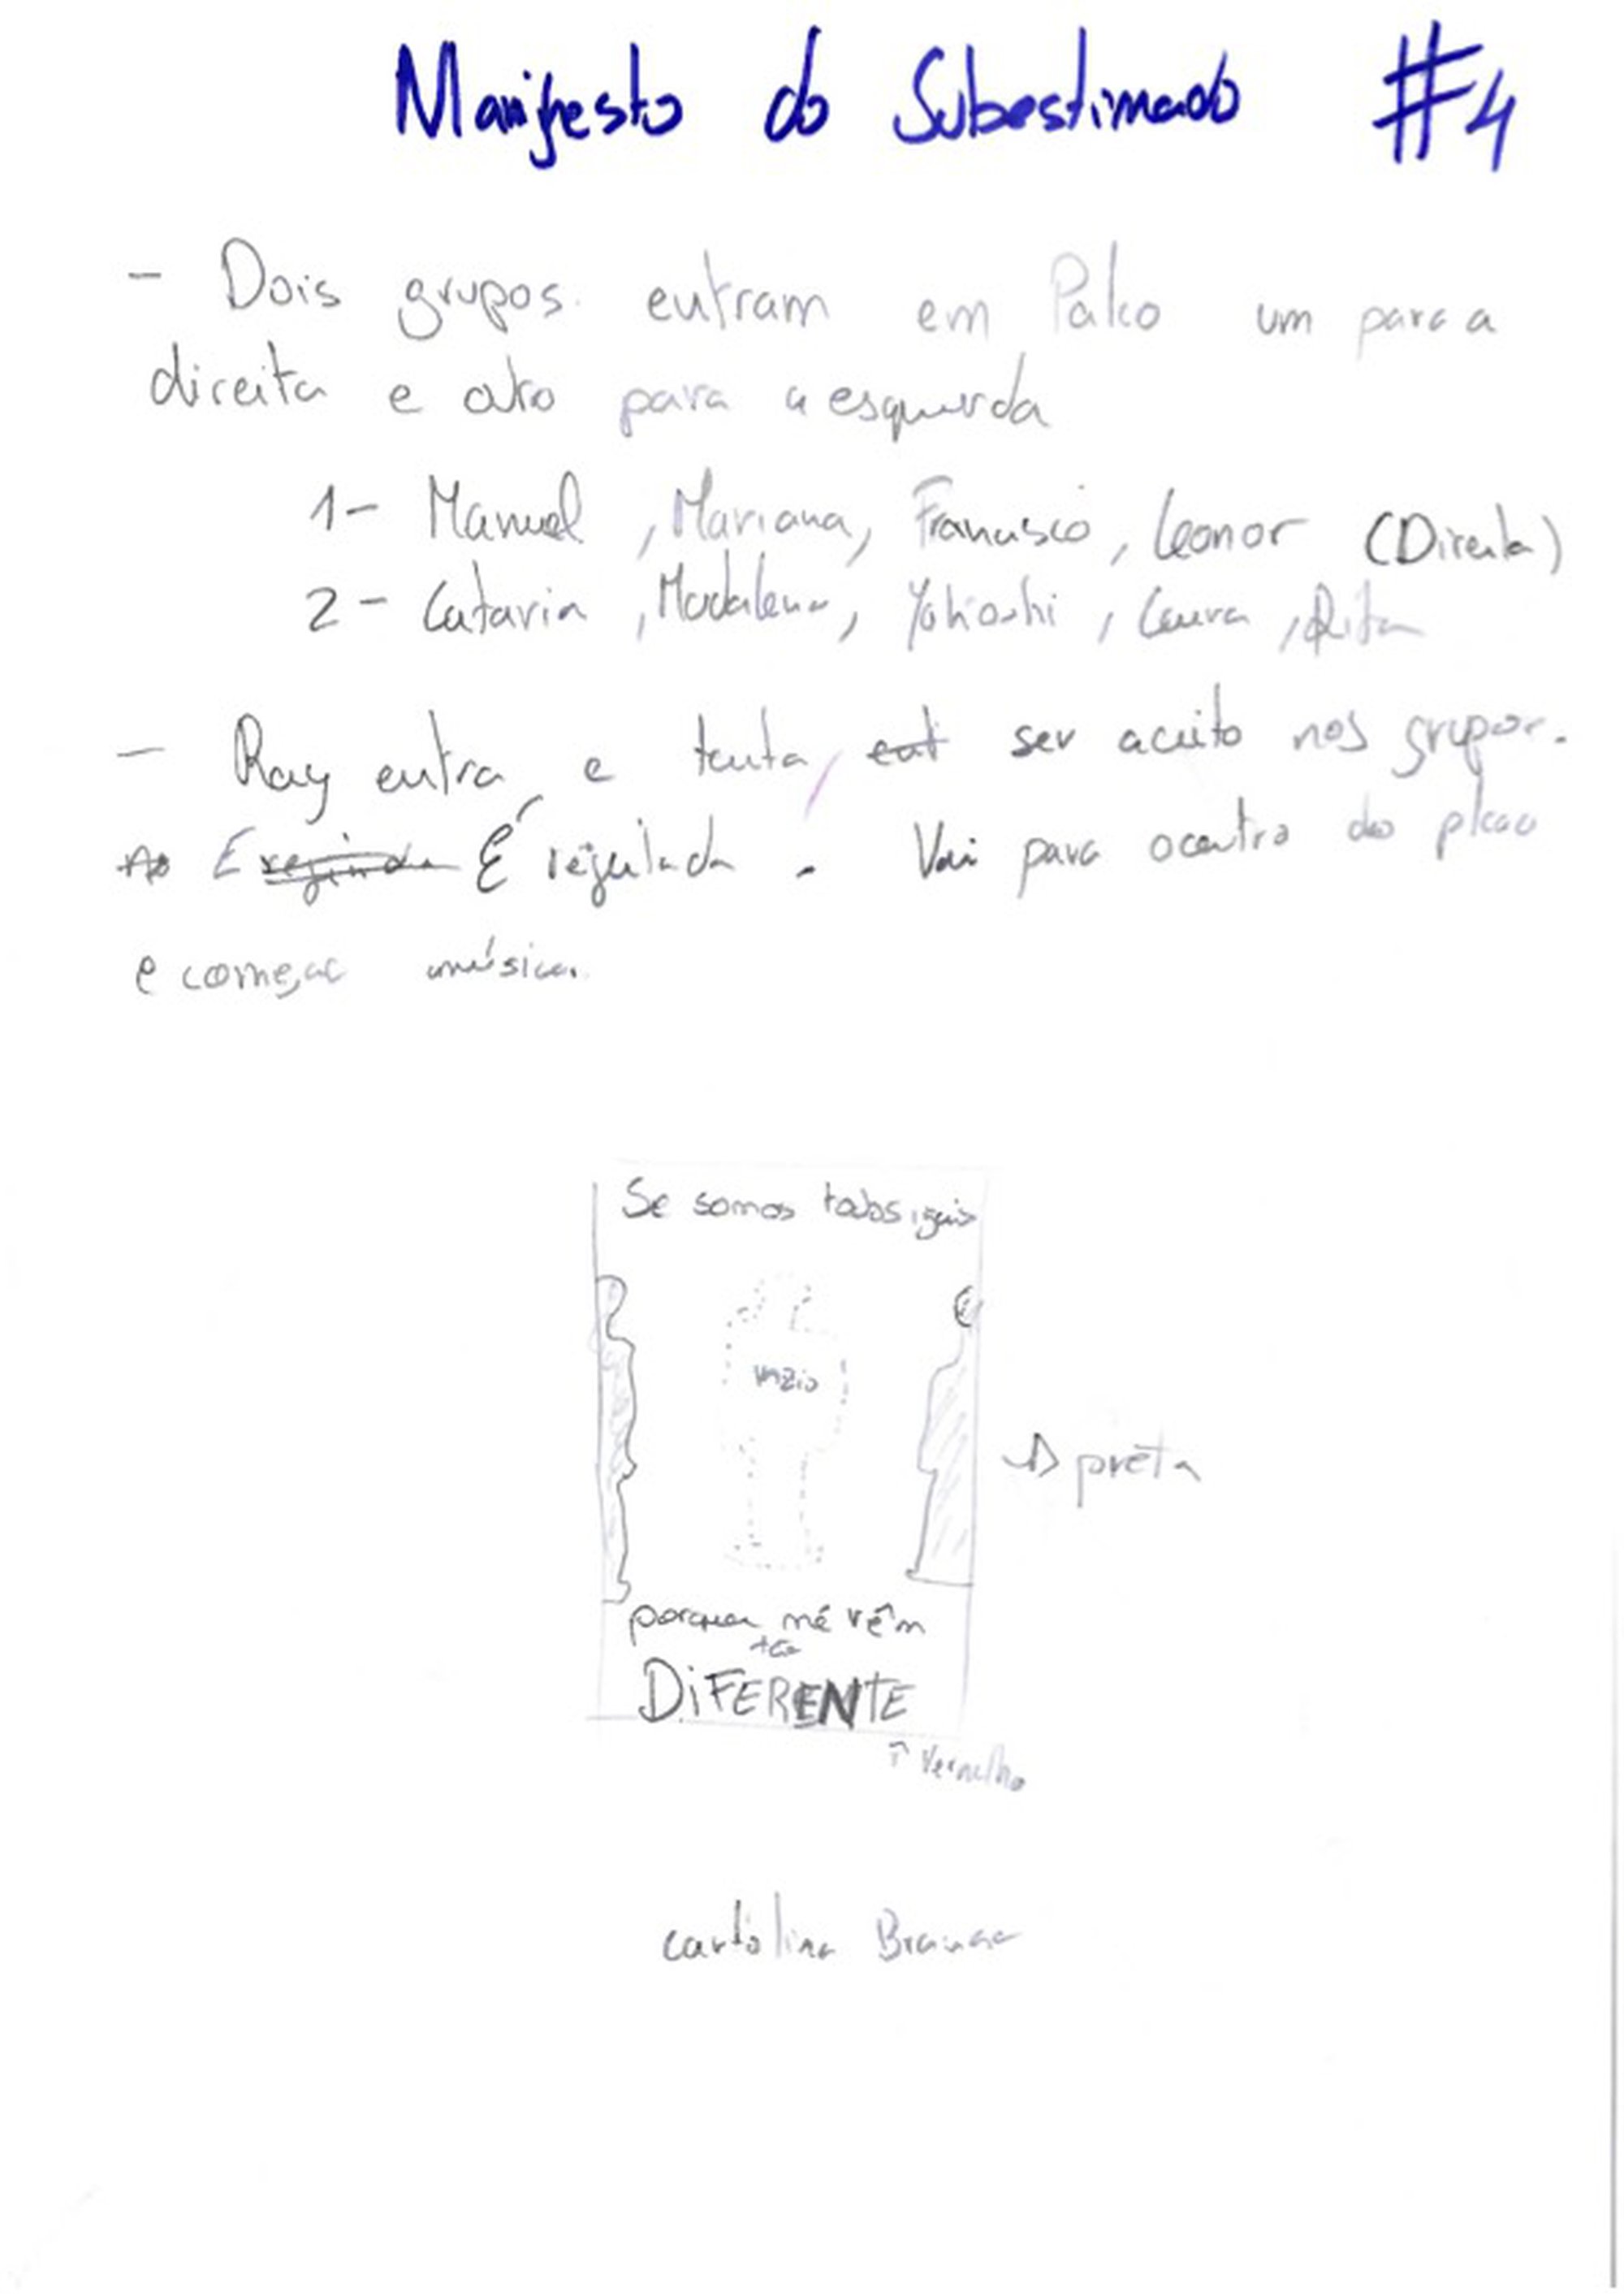 Manifesto do Subestimado #4
- Dois grupos entram em Palco um para a
direita e outro para a esquerda
1- Manuel, Mariana, Francisco, Leonor (Direita)
2- Catarin, Madalena, Yohoshi, Laura, Rita
- Ray entra e tenta ser aceito nos grupos.
E É rejeitada. Vai para o centro do placo
e começa música.
Se somos todos iguais
vazio
→ preta
porque me vêm
tão
DIFERENTE
↑ Vermelho
cartolina Branca